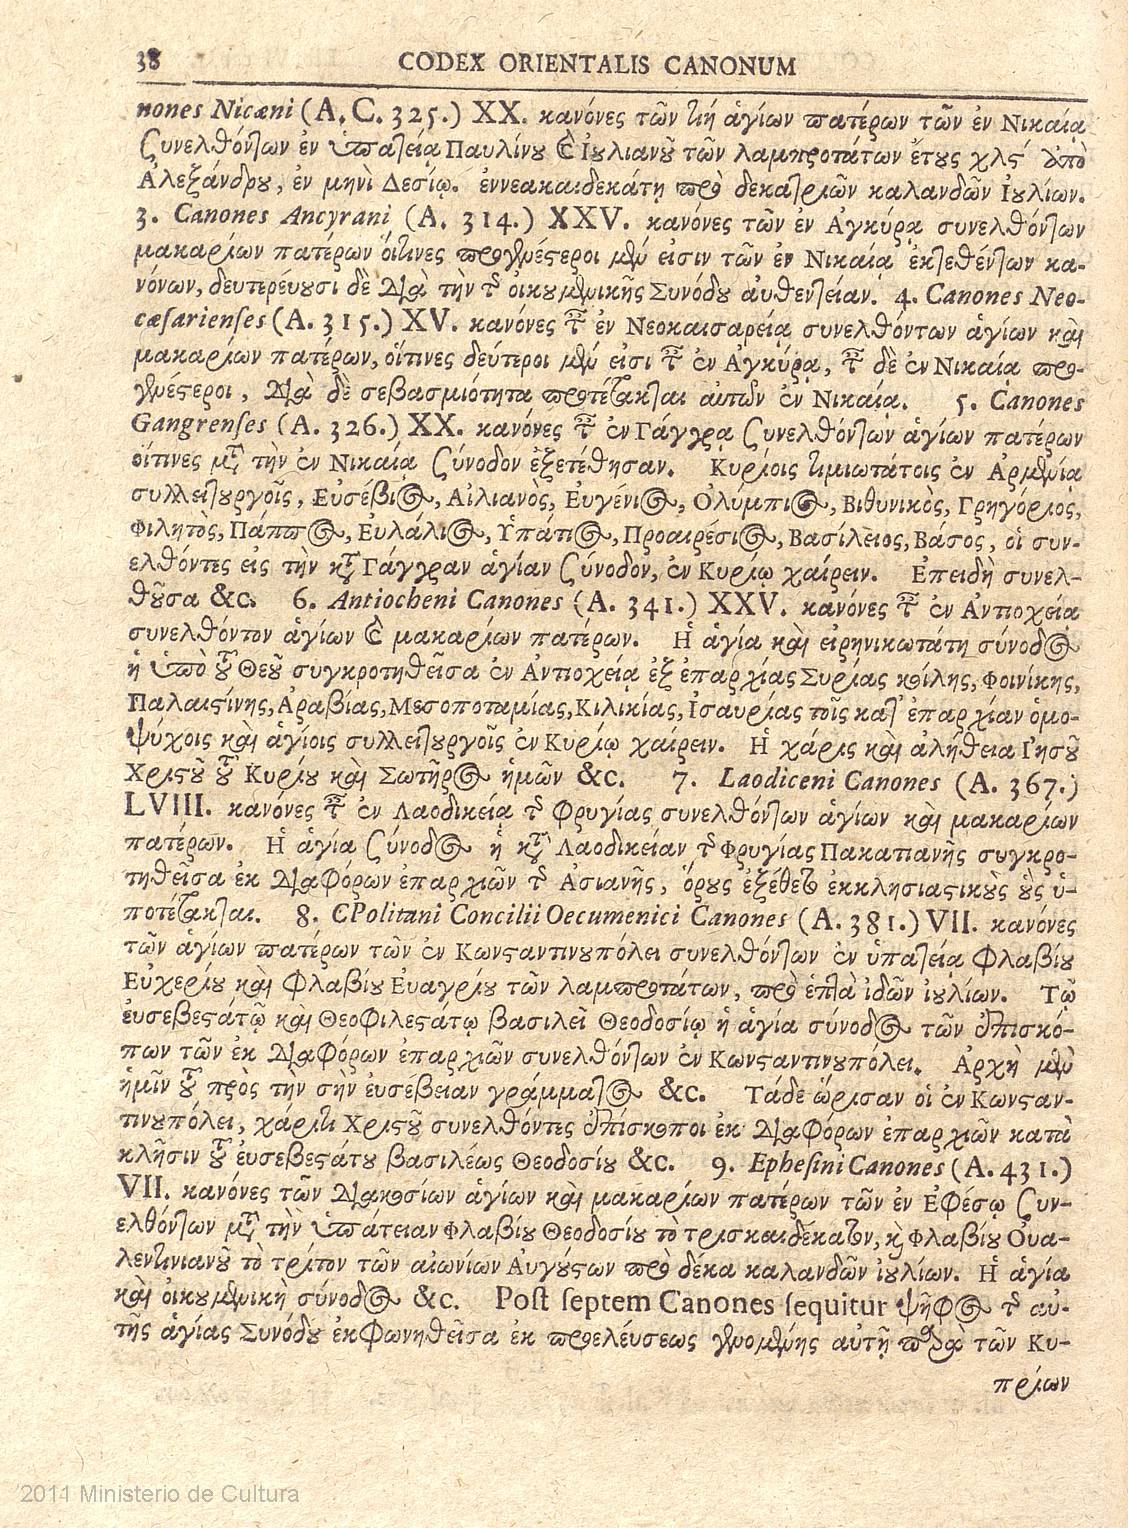 38 CODEX ORIENTALIS CANONUM
nones Nicæni (A. C. 325.) XX. κανόνες τῶν τιή ἁγίων πατέρων τῶν ἐν Νικαίᾳ
συνελθόντων ἐν ὑπατείᾳ Παυλίνου καὶ Ἰουλιανοῦ τῶν λαμπροτάτων ἔτους χλς΄ ἀπὸ
Ἀλεξάνδρου, ἐν μηνὶ Δεσίῳ. ἐννεακαιδεκάτῃ πρὸ δεκατριῶν καλανδῶν Ἰουλίων.
3. Canones Ancyrani (A. 314.) XXV. κανόνες τῶν ἐν Ἀγκύρᾳ συνελθόντων
μακαρίων πατέρων οἵτινες προγενέστεροι μέν εἰσιν τῶν ἐν Νικαίᾳ ἐκτεθέντων κα-
νόνων, δευτερέυουσι δὲ διὰ τὴν τῆς οἰκουμενικῆς Συνόδου ἀυθεντείαν. 4. Canones Neo-
cæsarienses (A. 315.) XV. κανόνες τῶν ἐν Νεοκαισαρείᾳ συνελθόντων ἁγίων καὶ
μακαρίων πατέρων, οἵτινες δεύτεροι μέν εἰσι τῶν ἐν Ἀγκύρᾳ, τῶν δὲ ἐν Νικαίᾳ προ-
γενέστεροι, διὰ δὲ σεβασμιότητα προτέτακται αὐτῶν ἐν Νικαίᾳ. 5. Canones
Gangrenses (A. 326.) XX. κανόνες τῶν ἐν Γάγγρᾳ συνελθόντων ἁγίων πατέρων
οἵτινες μετὰ τὴν ἐν Νικαίᾳ σύνοδον ἐξετέθησαν. Κυρίοις τιμιωτάτοις ἐν Ἀρμενίᾳ
συλλειτουργοῖς, Εὐσέβιος, Αἰλιανὸς, Ἐυγένιος, Ὀλύμπιος, Βιθυνικὸς, Γρηγόριος,
Φιλητὸς, Πάππος, Ἐυλάλιος, Ὑπάτιος, Προαιρέσιος, Βασίλειος, Βάσος, οἱ συν-
ελθόντες εἰς τὴν κατὰ Γάγγραν ἁγίαν σύνοδον, ἐν Κυρίῳ χαίρειν. Ἐπειδὴ συνελ-
θοῦσα &c. 6. Antiocheni Canones (A. 341.) XXV. κανόνες τῶν ἐν Ἀντιοχείᾳ
συνελθόντον ἁγίων καὶ μακαρίων πατέρων. Ἡ ἁγία καὶ εἰρηνικωτάτη σύνοδος
ἡ ὑπὸ τοῦ Θεοῦ συγκροτηθεῖσα ἐν Ἀντιοχείᾳ ἐξ ἐπαρχίας Συρίας κοίλης, Φοινίκης,
Παλαιστίνης, Ἀραβίας, Μεσοποταμίας, Κιλικίας, Ἰσαυρίας τοῖς κατ᾽ ἐπαρχίαν ὁμο-
ψύχοις καὶ ἁγίοις συλλειτουργοῖς ἐν Κυρίῳ χαίρειν. Ἡ χάρις καὶ ἀλήθεια Ἰησοῦ
Χριστοῦ τοῦ Κυρίου καὶ Σωτῆρος ἡμῶν &c. 7. Laodiceni Canones (A. 367.)
LVIII. κανόνες τῶν ἐν Λαοδικείᾳ τῆς Φρυγίας συνελθόντων ἁγίων καὶ μακαρίων
πατέρων. Ἡ ἁγία σύνοδος ἡ κατὰ Λαοδικείαν τῆς Φρυγίας Πακατιανῆς συγκρο-
τηθεῖσα ἐκ διαφόρων ἐπαρχιῶν τῆς Ἀσιανῆς, ὅρους ἐξέθετο ἐκκλησιαστικοὺς οὓς ὑ-
ποτέτακται. 8. CPolitani Concilii Oecumenici Canones (A. 381.) VII. κανόνες
τῶν ἁγίων πατέρων τῶν ἐν Κωνσταντινουπόλει συνελθόντων ἐν ὑπατείᾳ Φλαβίου
Εὐχερίου καὶ Φλαβίου Ἐυαγρίου τῶν λαμπροτάτων, πρὸ ἑπτὰ ἰδῶν ἰουλίων. Τῷ
ἐυσεβεστάτῳ καὶ Θεοφιλεστάτῳ βασιλεῖ Θεοδοσίῳ ἡ ἁγία σύνοδος τῶν ἐπισκό-
πων τῶν ἐκ διαφόρων ἐπαρχιῶν συνελθόντων ἐν Κωνσταντινουπόλει. Ἀρχὴ μὲν
ἡμῖν τοῦ πρὸς τὴν σὴν ἐυσέβειαν γράμματος &c. Τάδε ὥρισαν οἱ ἐν Κωνσταν-
τινουπόλει, χάριτι Χριστοῦ συνελθόντες ἐπίσκοποι ἐκ διαφόρων ἐπαρχιῶν κατὰ
κλῆσιν τοῦ ἐυσεβεστάτου βασιλέως Θεοδοσίου &c. 9. Ephesini Canones (A. 431.)
VII. κανόνες τῶν διακοσίων ἁγίων καὶ μακαρίων πατέρων τῶν ἐν Ἐφέσῳ συν-
ελθόντων μετὰ τὴν ὑπάτειαν Φλαβίου Θεοδοσίου τὸ τρισκαιδέκατον, καὶ Φλαβίου Οὐα-
λεντινιανοῦ τὸ τρίτον τῶν αἰωνίων Ἀυγούστων πρὸ δέκα καλανδῶν ἰουλίων. Ἡ ἁγία
καὶ οἰκουμενικὴ σύνοδος &c. Post septem Canones sequitur ψῆφος τῆς αὐ-
τῆς ἁγίας Συνόδου ἐκφωνηθεῖσα ἐκ προελέυσεως γενομένης αὐτῇ παρὰ τῶν Κυ-
πρίων
2011 Ministerio de Cultura